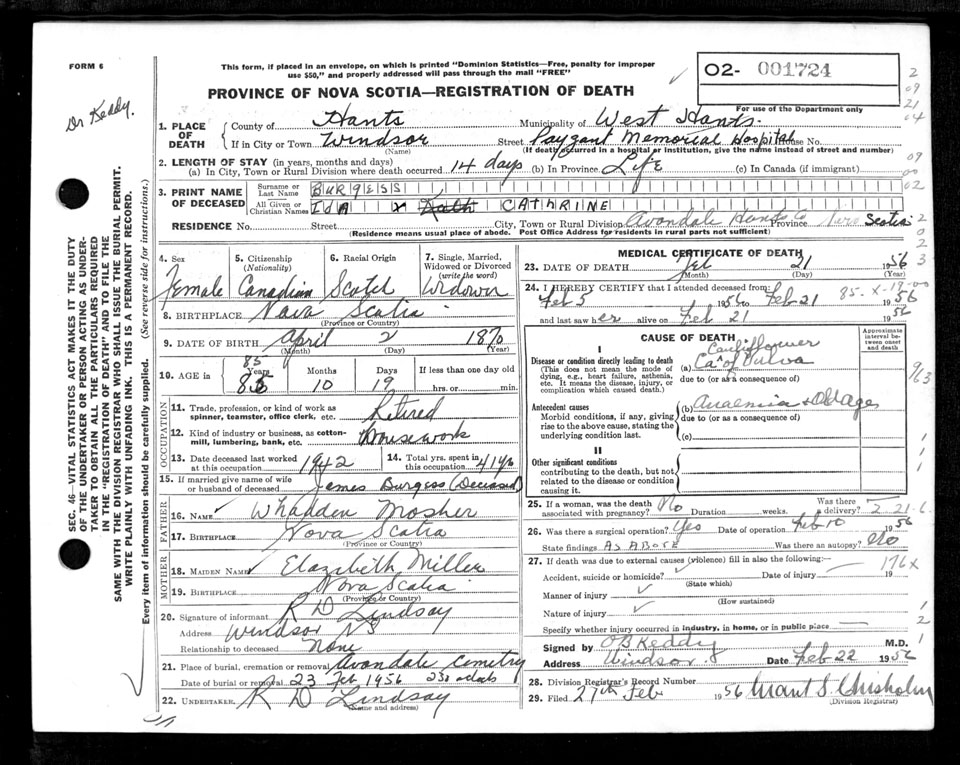 FORM 6
This form, if placed in an envelope, on which is printed "Dominion Statistics—Free, penalty for improper
use $50," and properly addressed will pass through the mail "FREE"
02- 001724
For use of the Department only
PROVINCE OF NOVA SCOTIA—REGISTRATION OF DEATH
Dr Keddy.
1. PLACE OF DEATH
County of Hants Municipality of West Hants.
If in City or Town Windsor Street Payzant Memorial Hospital House No.
(Name) (If death occurred in a hospital or institution, give the name instead of street and number)
2. LENGTH OF STAY (in years, months and days)
(a) In City, Town or Rural Division where death occurred 14 days (b) In Province Life (c) In Canada (if immigrant)
3. PRINT NAME OF DECEASED
Surname or Last Name BURGESS
All Given or Christian Names IdA Kath CATHRINE
RESIDENCE No. Street City, Town or Rural Division Avondale Hants Co Province Nova Scotia
(Residence means usual place of abode. Post Office Address for residents in rural parts not sufficient)
4. Sex 5. Citizenship (Nationality) 6. Racial Origin 7. Single, Married, Widowed or Divorced (write the word)
Female Canadian Scotch Widower
8. BIRTHPLACE Nova Scotia
(Province or Country)
9. DATE OF BIRTH April 2 1870
(Month) (Day) (Year)
10. AGE in 85 Years 10 Months 19 Days If less than one day old hrs. or min.
OCCUPATION
11. Trade, profession, or kind of work as spinner, teamster, office clerk, etc. Retired
12. Kind of industry or business, as cotton-mill, lumbering, bank, etc. Housework
13. Date deceased last worked at this occupation 1942 14. Total yrs. spent in this occupation 41 yrs
15. If married give name of wife or husband of deceased James Burgess (Deceased)
FATHER
16. NAME Whadden Mosher
17. BIRTHPLACE Nova Scotia
(Province or Country)
MOTHER
18. MAIDEN NAME Elazabeth Miller
19. BIRTHPLACE Nova Scotia
(Province or Country)
20. Signature of informant R D Lindsay
Address Windsor NS
Relationship to deceased None
21. Place of burial, cremation or removal Avondale Cemetry
Date of burial or removal 23 Feb 1956
22. UNDERTAKER R D Lindsay
(Name and address)
MEDICAL CERTIFICATE OF DEATH
23. DATE OF DEATH Feb 21 1956
(Month) (Day) (Year)
24. I HEREBY CERTIFY that I attended deceased from:
Feb 5 1956 to Feb 21 1956
85-X-19-00
and last saw her alive on Feb 21 1956
CAUSE OF DEATH
Approximate interval between onset and death
I
Disease or condition directly leading to death
(This does not mean the mode of dying, e.g., heart failure, asthenia, etc. It means the disease, injury, or complication which caused death.)
Cauliflower
(a) Ca of Vulva
due to (or as a consequence of)
Antecedent causes
Morbid conditions, if any, giving rise to the above cause, stating the underlying condition last.
(b) Anaemia + Old Age
due to (or as a consequence of)
(c)
II
Other significant conditions
contributing to the death, but not related to the disease or condition causing it.
25. If a woman, was the death associated with pregnancy? No Duration weeks. Was there a delivery?
26. Was there a surgical operation? Yes Date of operation Feb 10 1956
State findings As Above Was there an autopsy? No
27. If death was due to external causes (violence) fill in also the following:—
176X
Accident, suicide or homicide? Date of injury 19
(State which)
Manner of injury
(How sustained)
Nature of injury
Specify whether injury occurred in industry, in home, or in public place
Signed by OB Keddy M.D.
Address Windsor. Date Feb 22 1956
28. Division Registrar's Record Number
29. Filed 27th Feb 1956 Grant S. Chisholm
(Division Registrar)
SEC. 46—VITAL STATISTICS ACT MAKES IT THE DUTY
OF THE UNDERTAKER OR PERSON ACTING AS UNDER-
TAKER TO OBTAIN ALL THE PARTICULARS REQUIRED
IN THE "REGISTRATION OF DEATH" AND TO FILE THE
SAME WITH THE DIVISION REGISTRAR WHO SHALL ISSUE THE BURIAL PERMIT.
WRITE PLAINLY WITH UNFADING INK. THIS IS A PERMANENT RECORD.
Every item of information should be carefully supplied. (See reverse side for instructions.)